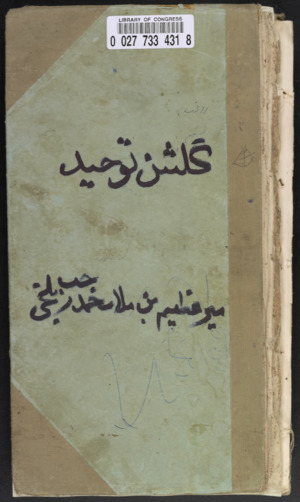 LIBRARY OF CONGRESS
0 027 733 431 8
گلشن توحید
میر عظیم بن ملا محمد رجب بلخی